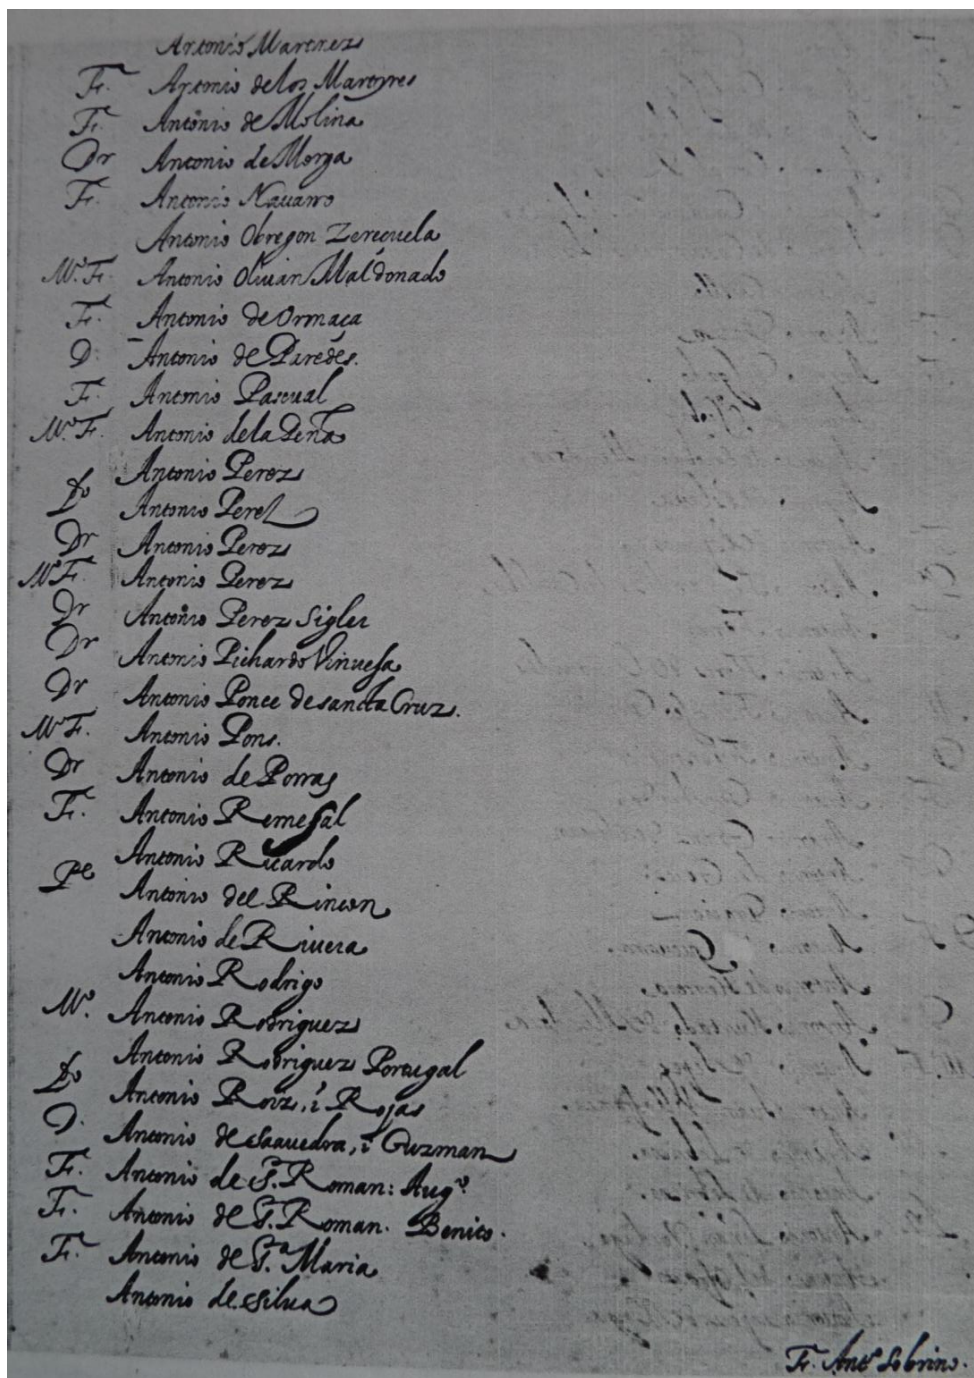 Antonio Martinez
Fr. Antonio de los Martyres
Fr. Antonio de Molina
Dr Antonio de Morga
Fr. Antonio Nauarro
Antonio Obregon Zerecuela
Mº. Fr. Antonio Oliuan Maldonado
Fr. Antonio de Ormaça
D. Antonio de Paredes.
F. Antonio Pascual
Mº. F. Antonio de la Peña
Antonio Perez
Lº Antonio Perez
Dr Antonio Perez
Mº F. Antonio Perez
Dr Antonio Perez Sigler
Dr Antonio Pichardo Vinuesa
Dr Antonio Ponce de sancta Cruz.
Mº F. Antonio Pons.
Dr Antonio de Porras
Fr. Antonio Remesal
Antonio Ricardo
Pe Antonio del Rincon
Antonio de Riuera
Antonio Rodrigo
Mº. Antonio Rodriguez
Antonio Rodriguez Portugal
Lº Antonio Roiz, i Rojas
D. Antonio de Saauedra, i Guzman
Fr. Antonio de S. Roman: Augº
Fr. Antonio de S. Roman. Benito.
Fr. Antonio de Sª Maria
Antonio de Silua
Fr. Antº Sobrino.